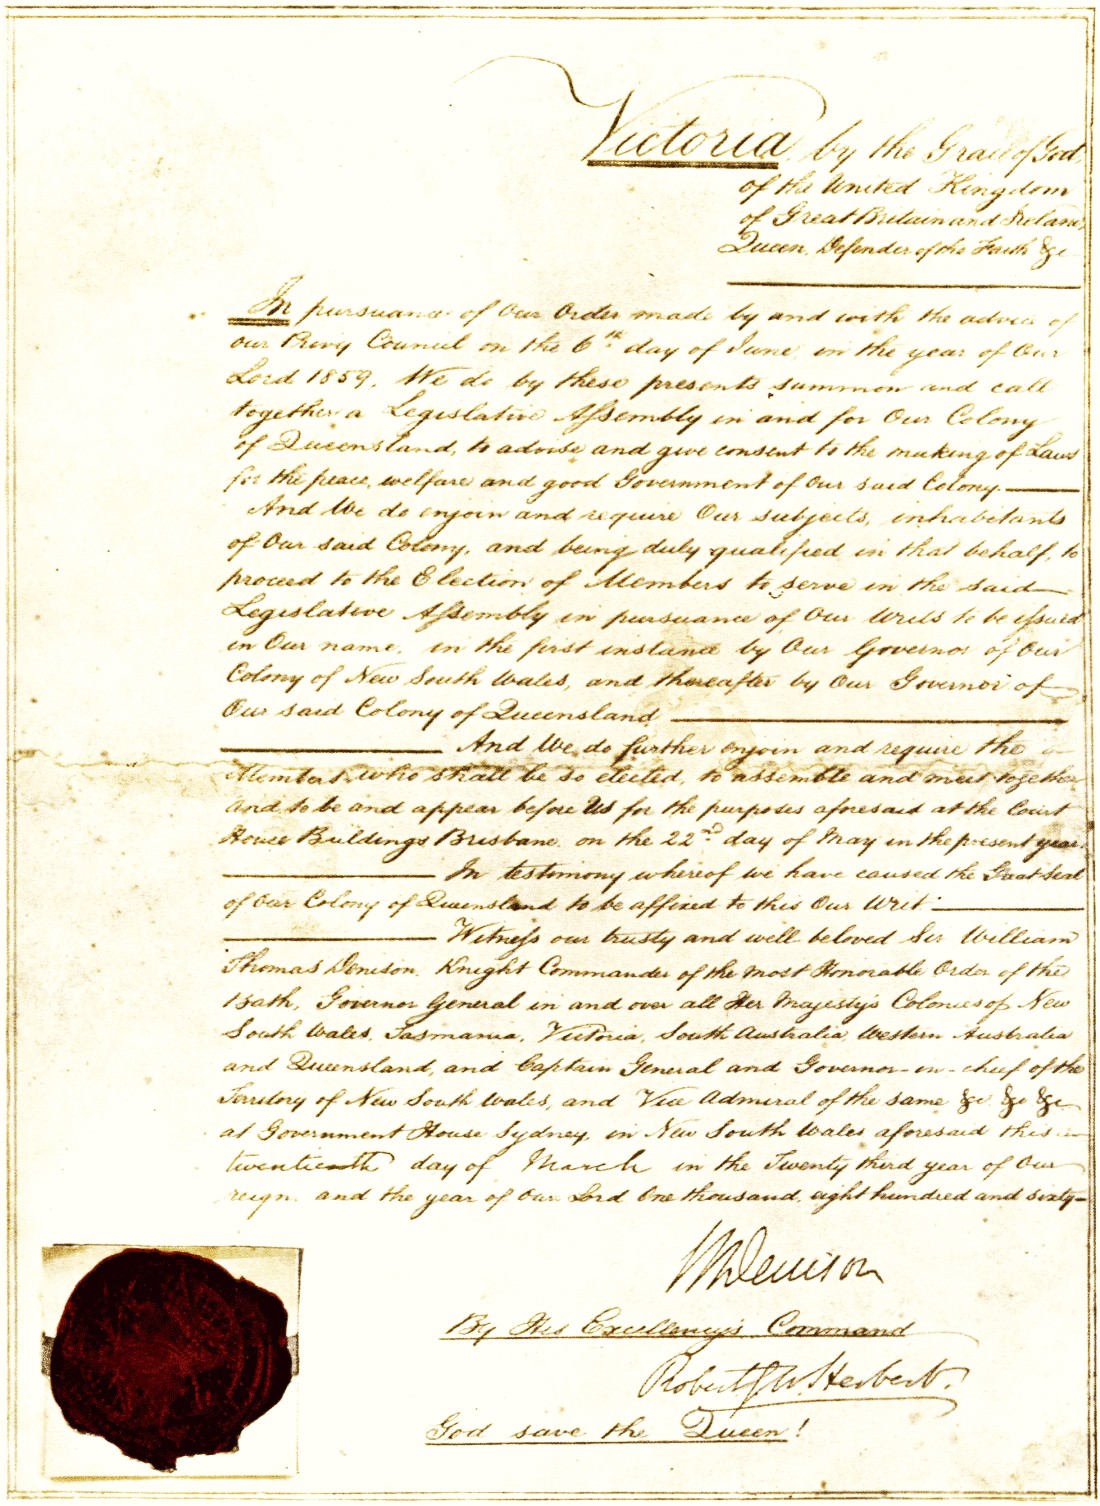 Victoria, by the Grace of God,
of the United Kingdom
of Great Britain and Ireland,
Queen, Defender of the Faith &c
In pursuance of Our Order made by and with the advice of
our Privy Council on the 6th day of June in the year of Our
Lord 1859. We do by these presents summon and call
together a Legislative Assembly in and for Our Colony
of Queensland, to advise and give consent to the making of Laws
for the peace, welfare and good Government of Our said Colony.
And We do enjoin and require Our subjects, inhabitants
of Our said Colony, and being duly qualified in that behalf, to
proceed to the Election of Members to serve in the said
Legislative Assembly in pursuance of Our Writs to be issued
in Our name, in the first instance by Our Governor of Our
Colony of New South Wales, and thereafter by Our Governor of
Our said Colony of Queensland
And We do further enjoin and require the
Members who shall be so elected, to assemble and meet together
and to be and appear before Us for the purposes aforesaid at the Court
House Buildings Brisbane, on the 22nd day of May in the present year.
In testimony whereof we have caused the Great Seal
of our Colony of Queensland to be affixed to this Our Writ.
Witness our trusty and well beloved Sir William
Thomas Denison, Knight Commander of the Most Honorable Order of the
Bath, Governor General in and over all Her Majesty's Colonies of New
South Wales, Tasmania, Victoria, South Australia, Western Australia
and Queensland, and Captain General and Governor-in-chief of the
Territory of New South Wales, and Vice Admiral of the same &c &c &c
at Government House Sydney, in New South Wales aforesaid this
twentieth day of March in the Twenty third year of Our
reign and the year of Our Lord One thousand, eight hundred and sixty-
W Denison
By His Excellency's Command
Robert G W Herbert.
God save the Queen!